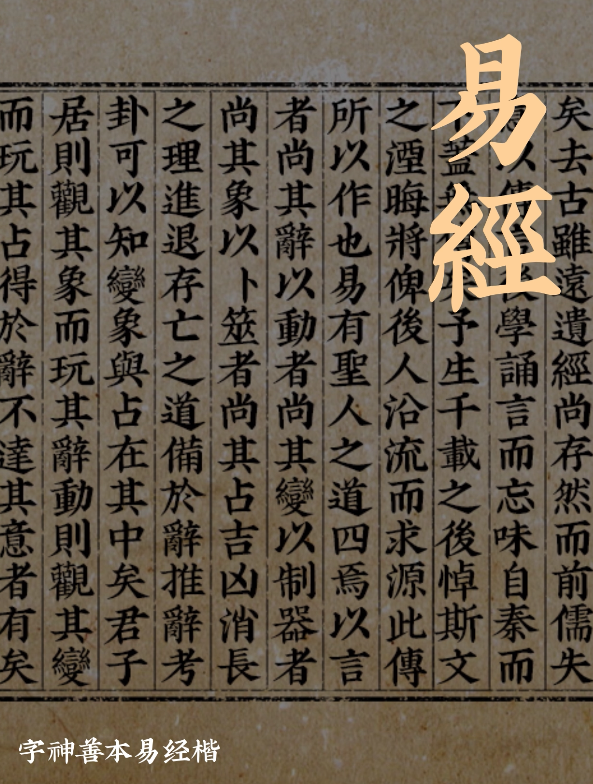 易經
矣去古雖遠遺經尚存然而前儒失
意以傳言後學誦言而忘味自秦而
下蓋無傳矣予生千載之後悼斯文
之湮晦將俾後人沿流而求源此傳
所以作也易有聖人之道四焉以言
者尚其辭以動者尚其變以制器者
尚其象以卜筮者尚其占吉凶消長
之理進退存亡之道備於辭推辭考
卦可以知變象與占在其中矣君子
居則觀其象而玩其辭動則觀其變
而玩其占得於辭不達其意者有矣
字神善本易经楷